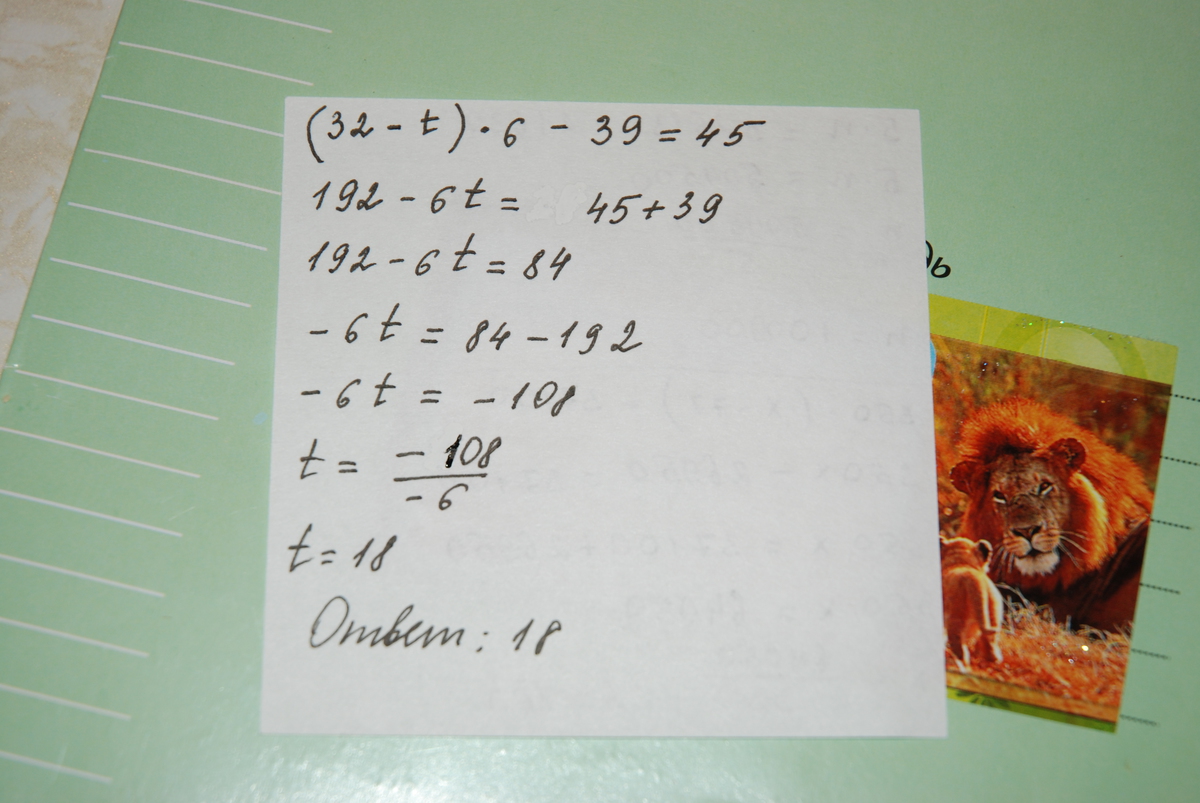 (32 - t) · 6 - 39 = 45
192 - 6t = 45 + 39
192 - 6t = 84
- 6t = 84 - 192
- 6t = - 108
t = - 108 / - 6
t = 18
Ответ: 18